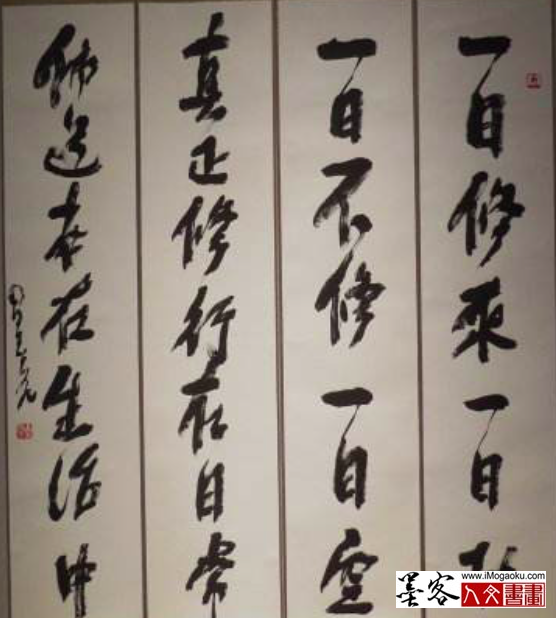 一日修來一日
一日不修一日空
真正修行在日常
道在生活中
墨客
www.iMogaoku.com
人文書畫